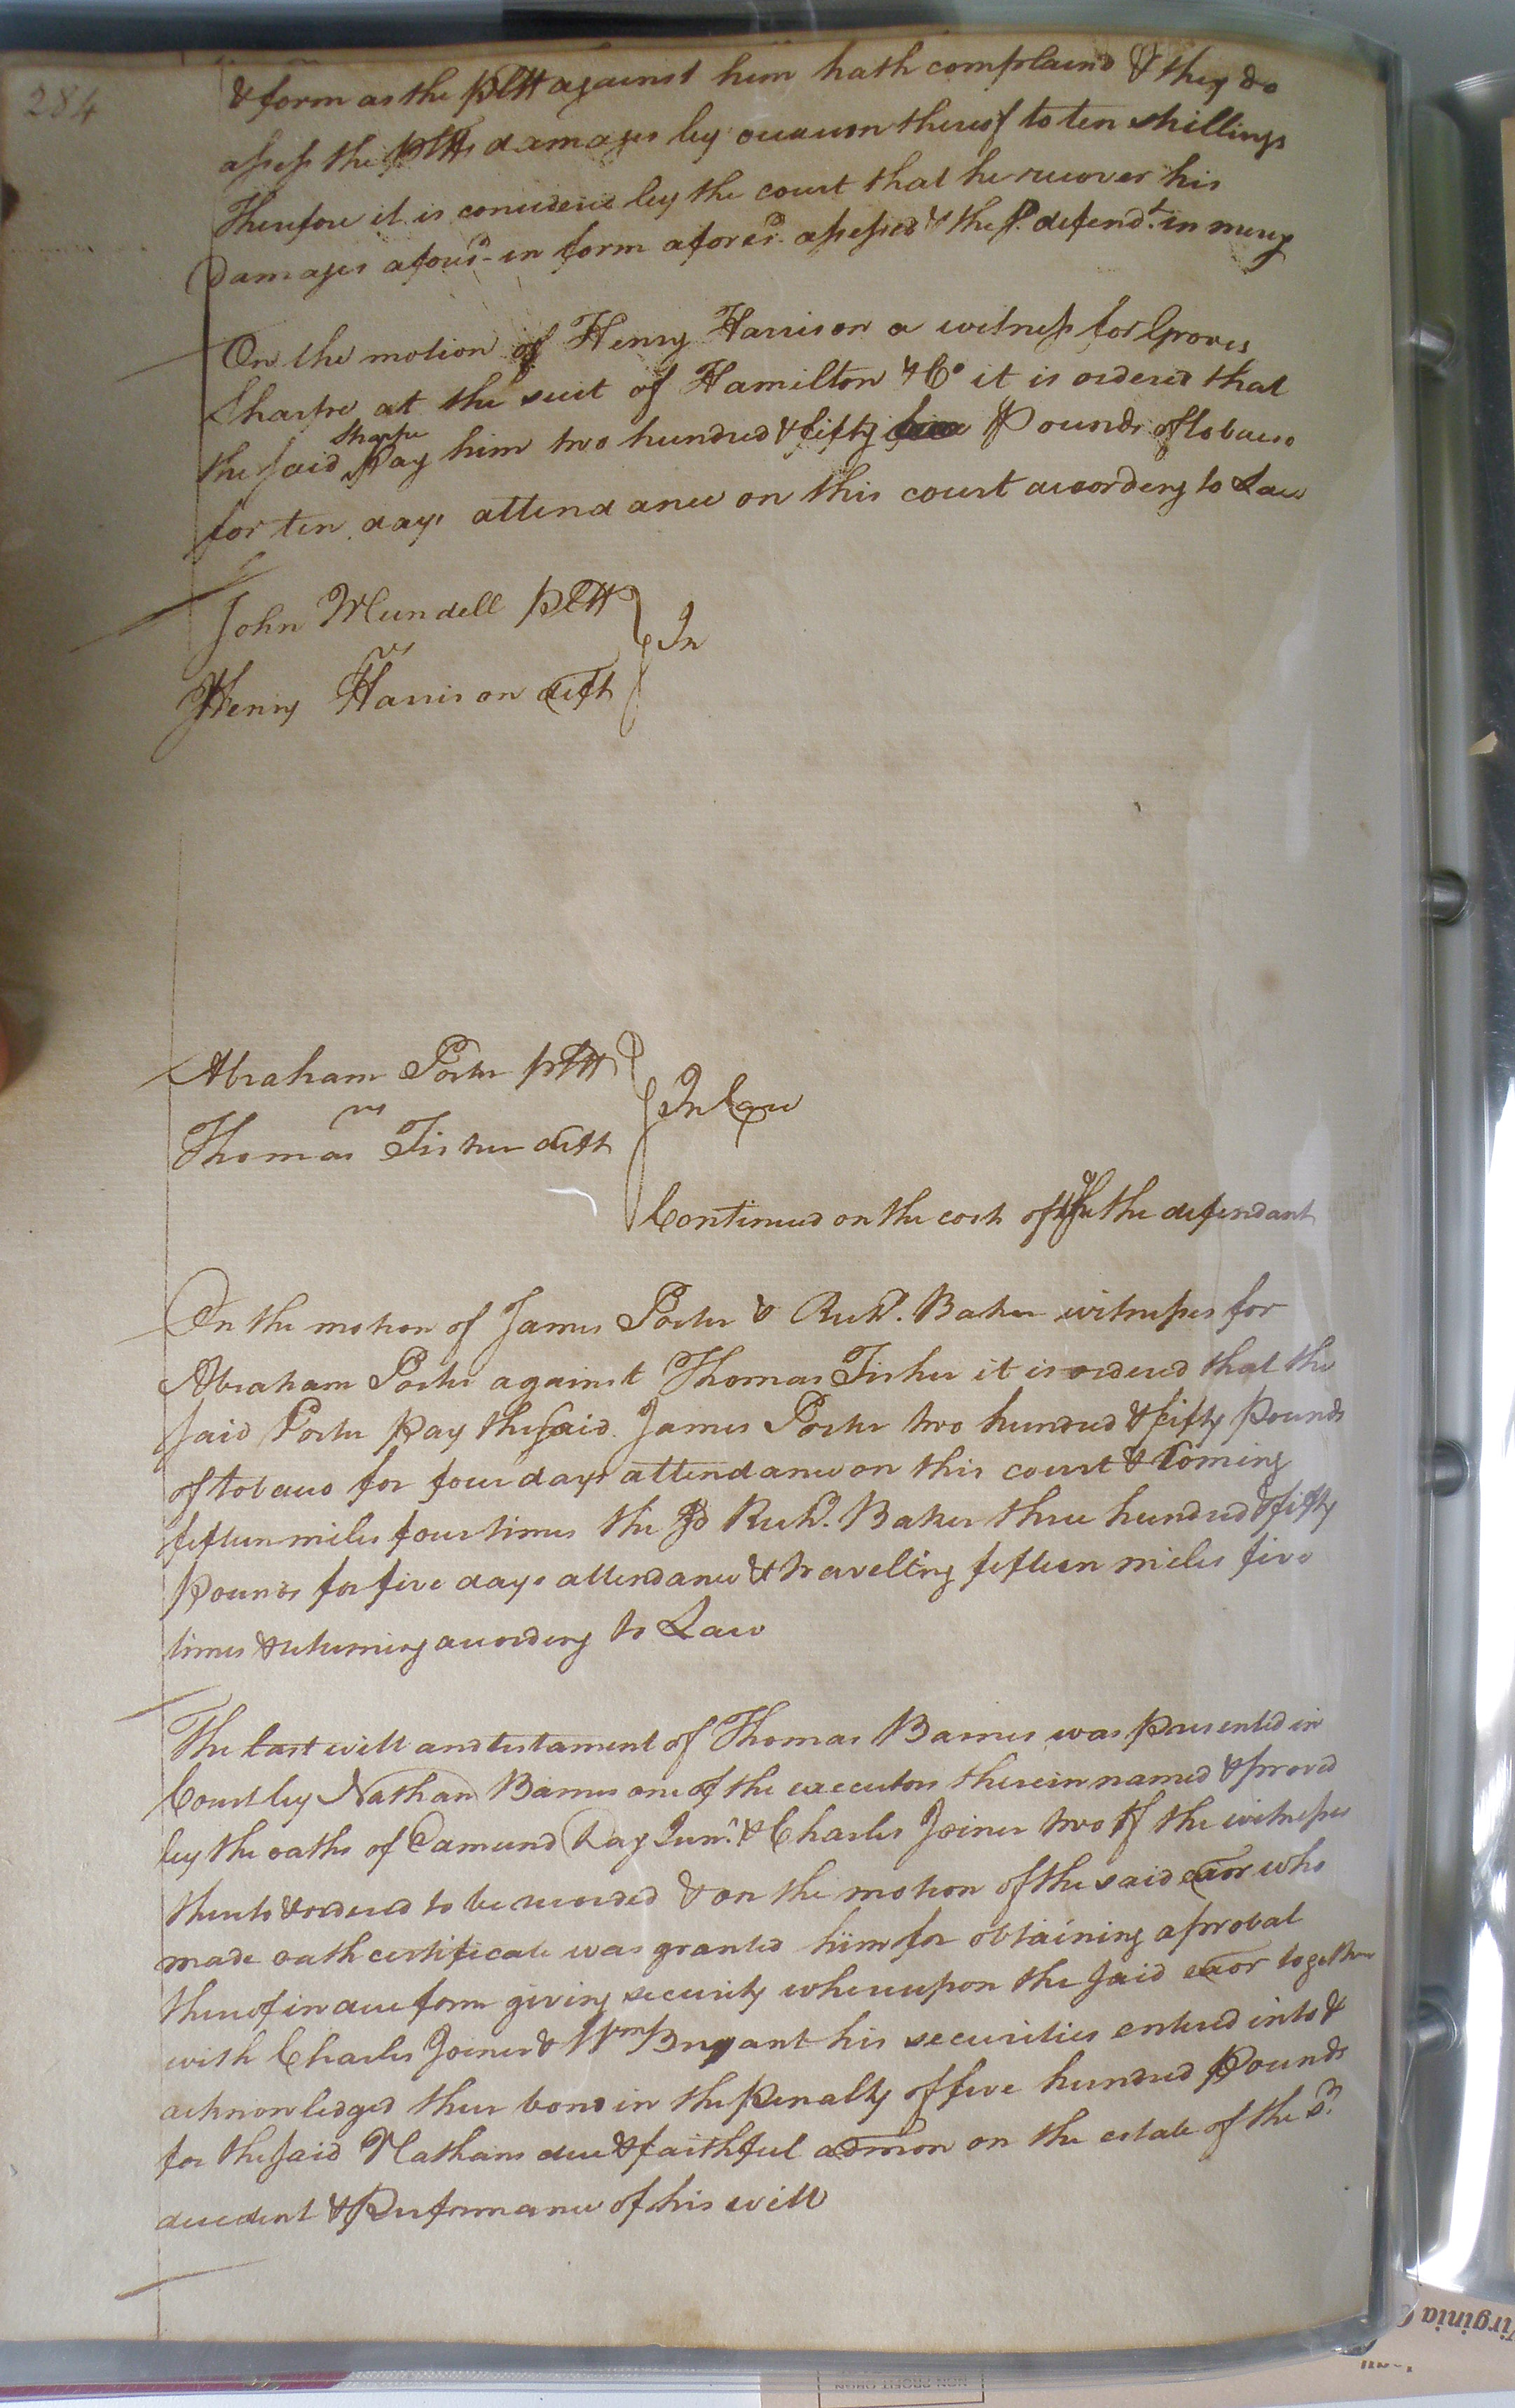 284
& form as the pltt against him hath complaind & they do
assess the pltts damages by occasion thereof to ten shillings
Therefore it is considered by the court that he recover his
Damages afores.d in form afores.d assessed & the s.d defend.t in mercy
On the motion of Henry Harrison a witness for Groves
Sharpe at the suit of Hamilton & Co it is ordered that
the said Sharpe Pay him two hundred & fifty Pounds of tobacco
for ten days attendance on this court according to Law
John Mundell pltt
vs
In
Henry Harrison deft
Abraham Porter pltt
vs
In Case
Thomas Fisher deft
Continued on the costs of the defendant
On the motion of James Porter & Rich.d Baker witnesses for
Abraham Porter against Thomas Fisher it is ordered that the
said Porter Pay the said James Porter two hundred & fifty Pounds
of tobacco for four days attendance on this court & Coming
fifteen miles four times the sd Rich.d Baker three hundred & fifty
Pounds for five days attendance & traveling fifteen miles five
times & returning according to Law
The last will and testament of Thomas Barnes was presented in
Court by Nathan Barnes one of the executors therein named & proved
by the oaths of Edmund Day Jun.r & Charles Joiner two of the witnesses
thereto & ordered to be recorded & on the motion of the said exor who
made oath certificate was granted him for obtaining a probat
thereof in due form giving security whereupon the said exor together
with Charles Joiner & Wm Bryant his securities entered into &
acknowledged their bond in the Penalty of five hundred Pounds
for the said Nathans due & faithful admon on the estate of the s.d
decedent & Performance of his will
Virginia